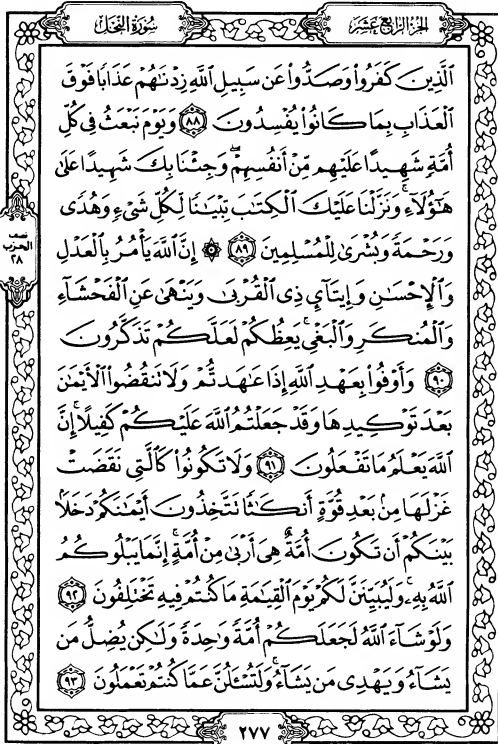 الجزء الرابع عشر
سورة النحل
الَّذِينَ كَفَرُوا وَصَدُّوا عَن سَبِيلِ اللَّهِ زِدْنَاهُمْ عَذَابًا فَوْقَ
الْعَذَابِ بِمَا كَانُوا يُفْسِدُونَ ٨٨ وَيَوْمَ نَبْعَثُ فِي كُلِّ
أُمَّةٍ شَهِيدًا عَلَيْهِم مِّنْ أَنفُسِهِمْ ۖ وَجِئْنَا بِكَ شَهِيدًا عَلَىٰ
هَٰؤُلَاءِ ۚ وَنَزَّلْنَا عَلَيْكَ الْكِتَٰبَ تِبْيَٰنًا لِّكُلِّ شَيْءٍ وَهُدًى
وَرَحْمَةً وَبُشْرَىٰ لِلْمُسْلِمِينَ ٨٩ ۞ إِنَّ اللَّهَ يَأْمُرُ بِالْعَدْلِ
وَالْإِحْسَٰنِ وَإِيتَآئِ ذِي الْقُرْبَىٰ وَيَنْهَىٰ عَنِ الْفَحْشَآءِ
وَالْمُنكَرِ وَالْبَغْيِ ۚ يَعِظُكُمْ لَعَلَّكُمْ تَذَكَّرُونَ
٩٠ وَأَوْفُوا بِعَهْدِ اللَّهِ إِذَا عَٰهَدتُّمْ وَلَا تَنقُضُوا الْأَيْمَٰنَ
بَعْدَ تَوْكِيدِهَا وَقَدْ جَعَلْتُمُ اللَّهَ عَلَيْكُمْ كَفِيلًا ۚ إِنَّ
اللَّهَ يَعْلَمُ مَا تَفْعَلُونَ ٩١ وَلَا تَكُونُوا كَالَّتِي نَقَضَتْ
غَزْلَهَا مِنۢ بَعْدِ قُوَّةٍ أَنكَٰثًا تَتَّخِذُونَ أَيْمَٰنَكُمْ دَخَلًۢا
بَيْنَكُمْ أَن تَكُونَ أُمَّةٌ هِيَ أَرْبَىٰ مِنْ أُمَّةٍ ۚ إِنَّمَا يَبْلُوكُمُ
اللَّهُ بِهِ ۚ وَلَيُبَيِّنَنَّ لَكُمْ يَوْمَ الْقِيَٰمَةِ مَا كُنتُمْ فِيهِ تَخْتَلِفُونَ ٩٢
وَلَوْ شَآءَ اللَّهُ لَجَعَلَكُمْ أُمَّةً وَٰحِدَةً وَلَٰكِن يُضِلُّ مَن
يَشَآءُ وَيَهْدِي مَن يَشَآءُ ۚ وَلَتُسْـَٔلُنَّ عَمَّا كُنتُمْ تَعْمَلُونَ ٩٣
نصف
الحزب
٢٨
٢٧٧